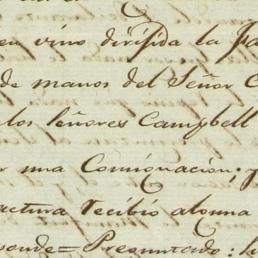 en vino dirijida la
de manos del Señor C
los Señores Campbell
una Consignacion;
actura recibió alguna
ponde = Presentado: